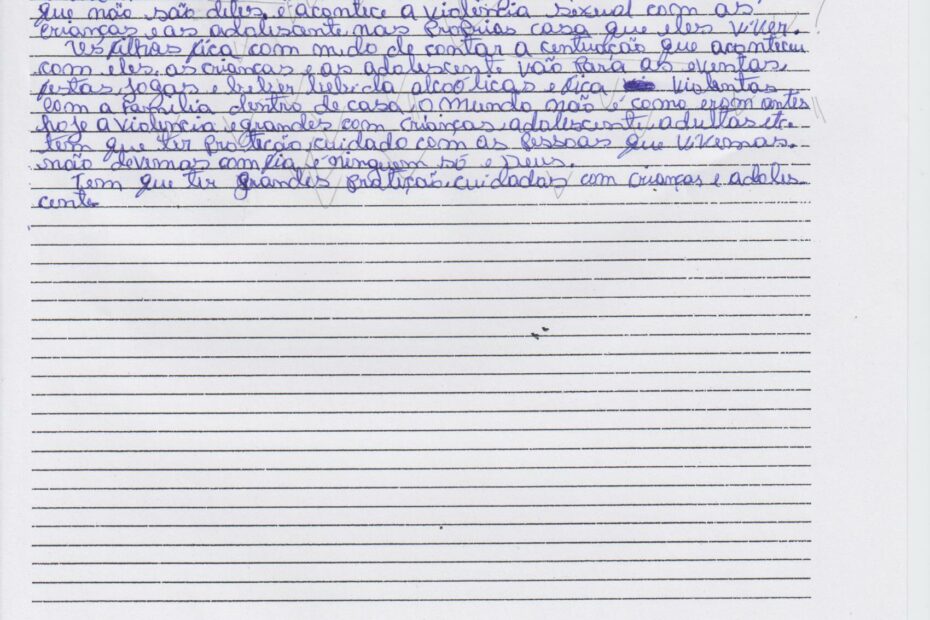 que não são deles, e acontece a violência sexual com as
crianças e as adolescente nas próprias casa que eles viver.
As filhas fica com medo de contar a centudção que aconteceu
com eles. as crianças e as adolescente vão para as eventos,
festas, jogas e beber bebida alcoólicas e fica violentas
com a família dentro de casa o mundo não é como eram antes
hoje a violência e grandes com crianças, adolescente, adultas etc.
tem que ter proteção, cuidado com as pessoas que vivemos.
não devemos com fia e ninguem só e Deus.
Tem que ter grandes pratição, cuidadas com crianças e adoles
cente